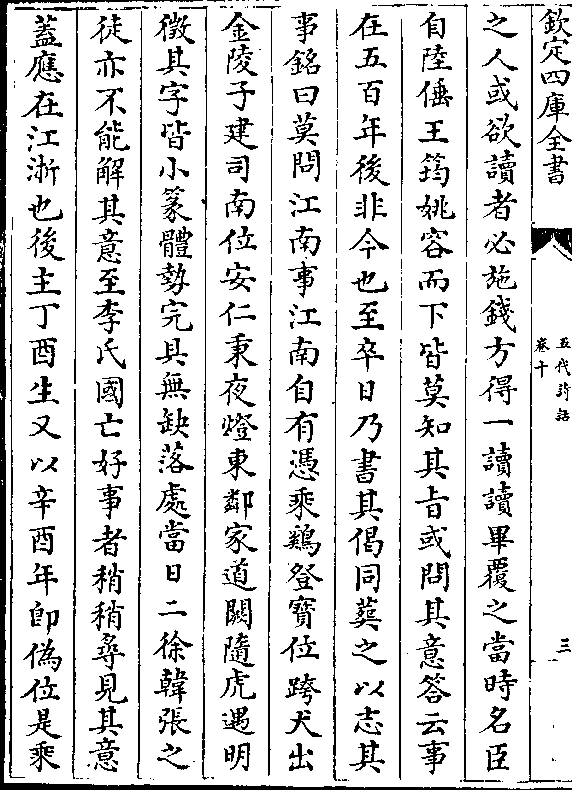 欽定四庫全書
五代詩話
卷十
三
之人或欲讀者必施錢方得一讀讀畢覆之當時名臣
自陸倕王筠姚容而下皆莫知其旨或問其意答云事
在五百年後非今也至卒日乃書其偈同葬之以志其
事銘曰莫問江南事江南自有憑乘鷄登寳位跨犬出
金陵子建司南位安仁秉夜燈東鄰家道闕隨虎遇明
徴其字皆小篆體勢完具無缺落處當日二徐韓張之
徒亦不能解其意至李氏國亡好事者稍稍尋見其意
蓋應在江浙也後主丁酉生又以辛酉年即偽位是乘